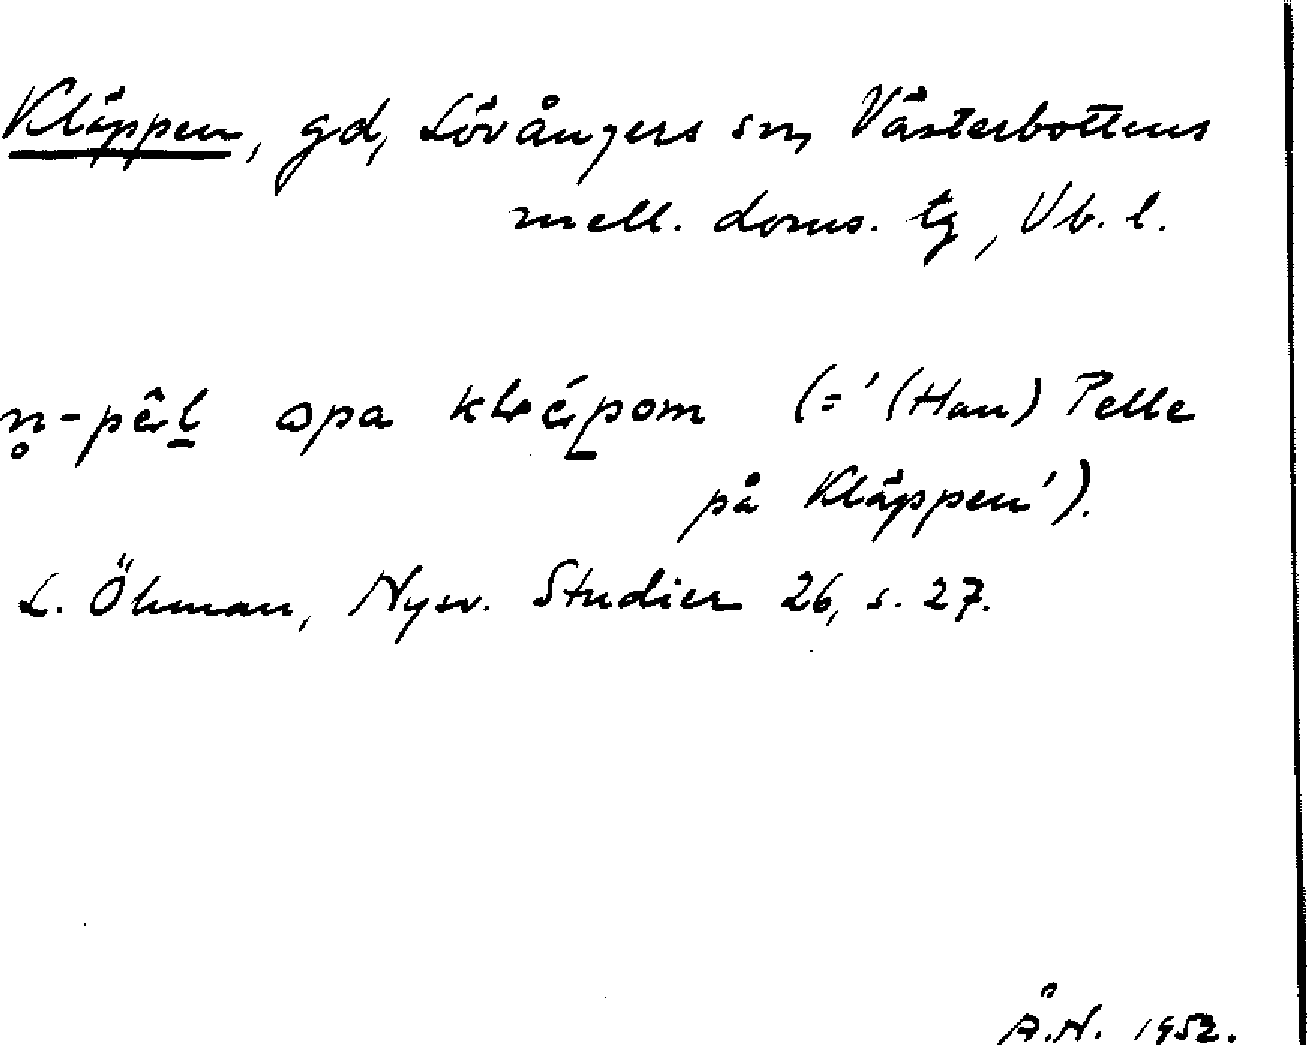 Kläppen, gd, Lövångers sn, Västerbottens
mell. doms. tg, Vb. l.
(= '(Han) Pelle
på Kläppen').
L. Öhman, Nysv. Studier 26, s. 27.
Å.N. 1952.